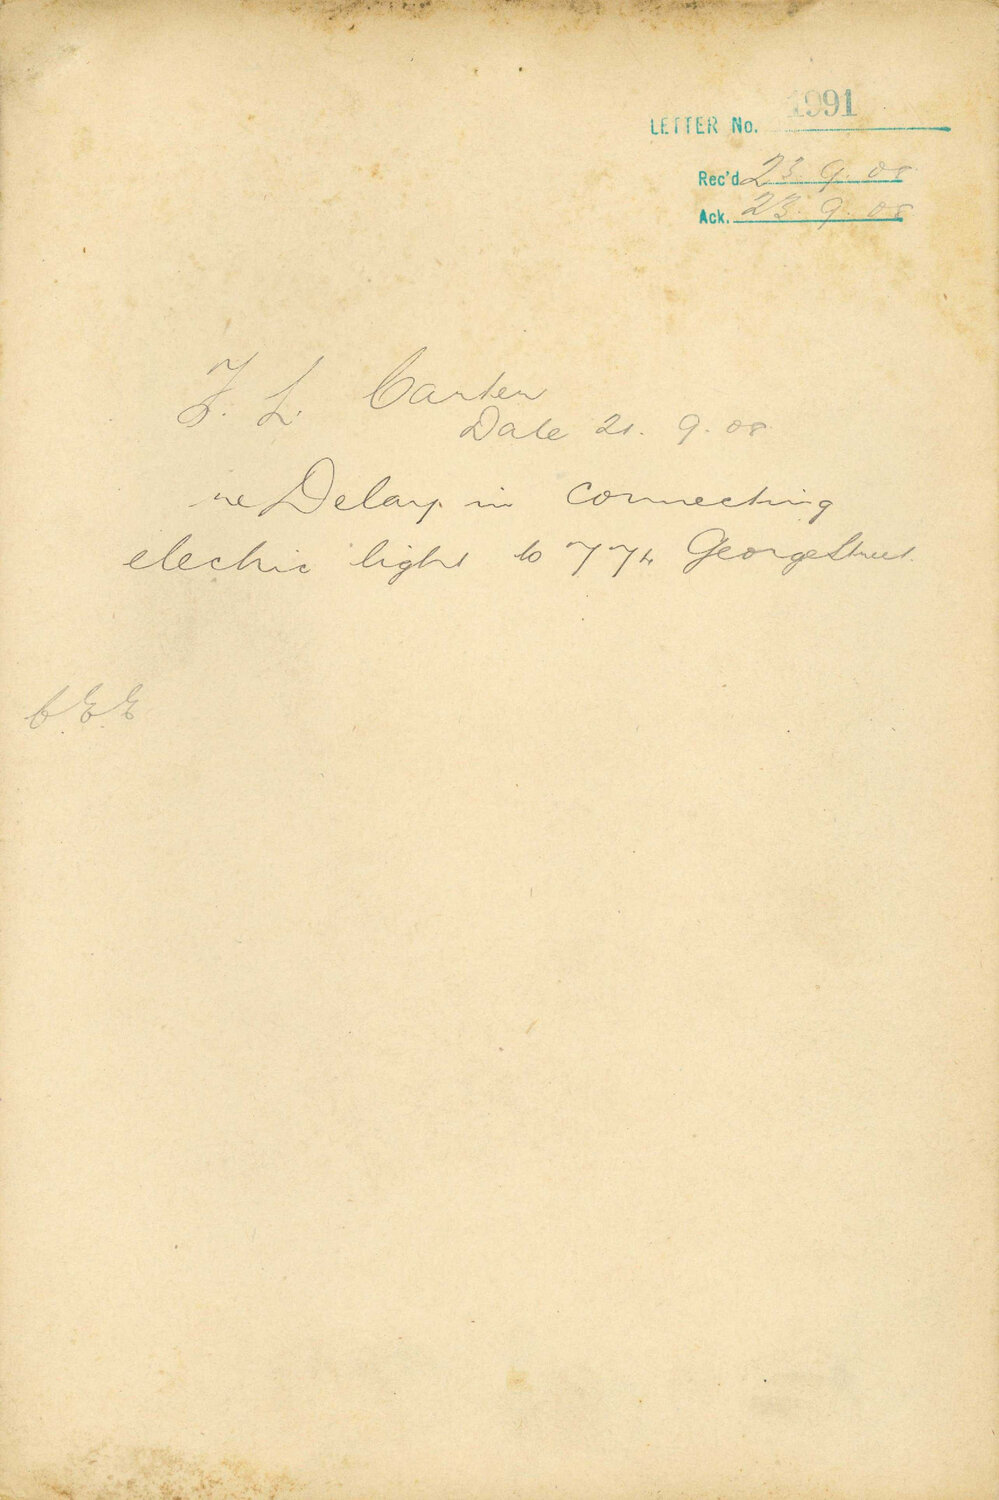 LETTER No. 1991
Rec'd 23. 9. 08
Ack. 23. 9. 08
F. L. Carter
Date 21. 9. 08
re Delay in connecting
electric light to 774 George Street.
C.E.E.